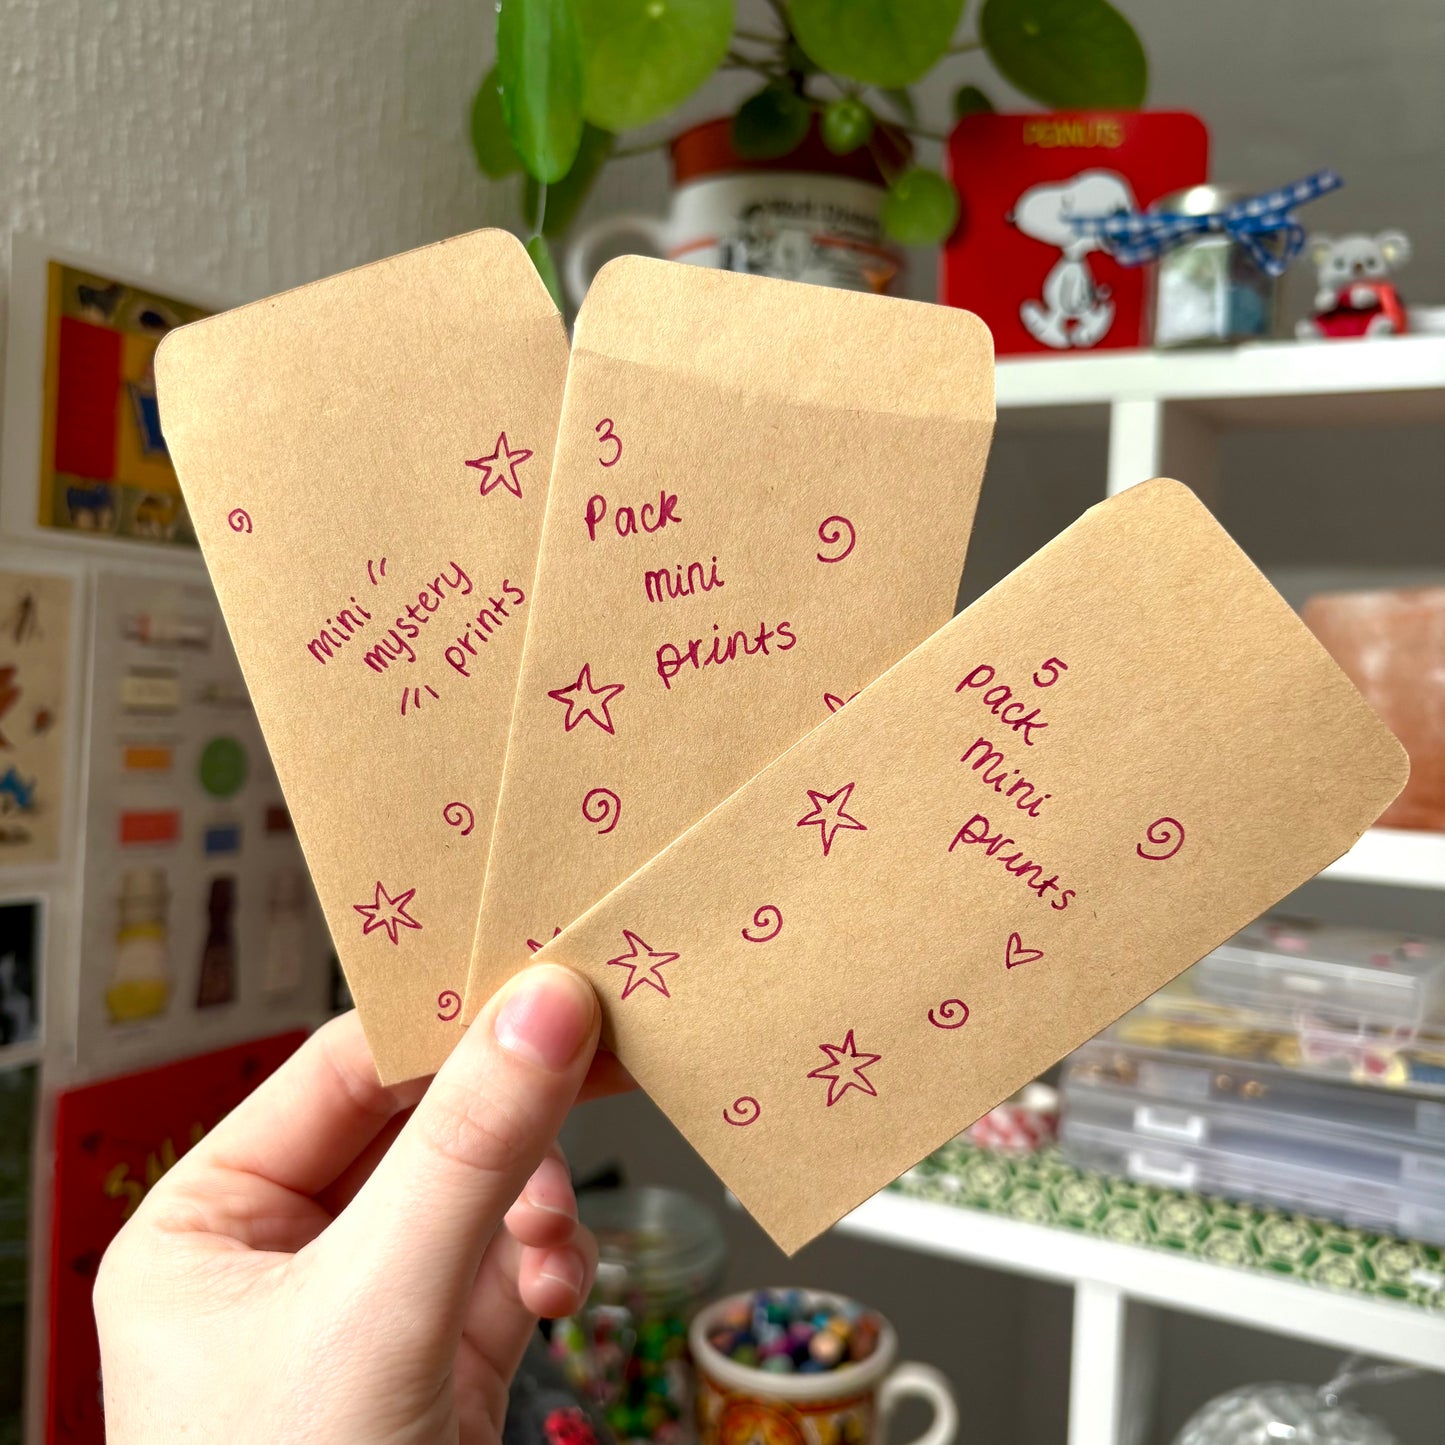 mini
mystery
prints
3
Pack
mini
prints
5
pack
mini
prints
PEANUTS